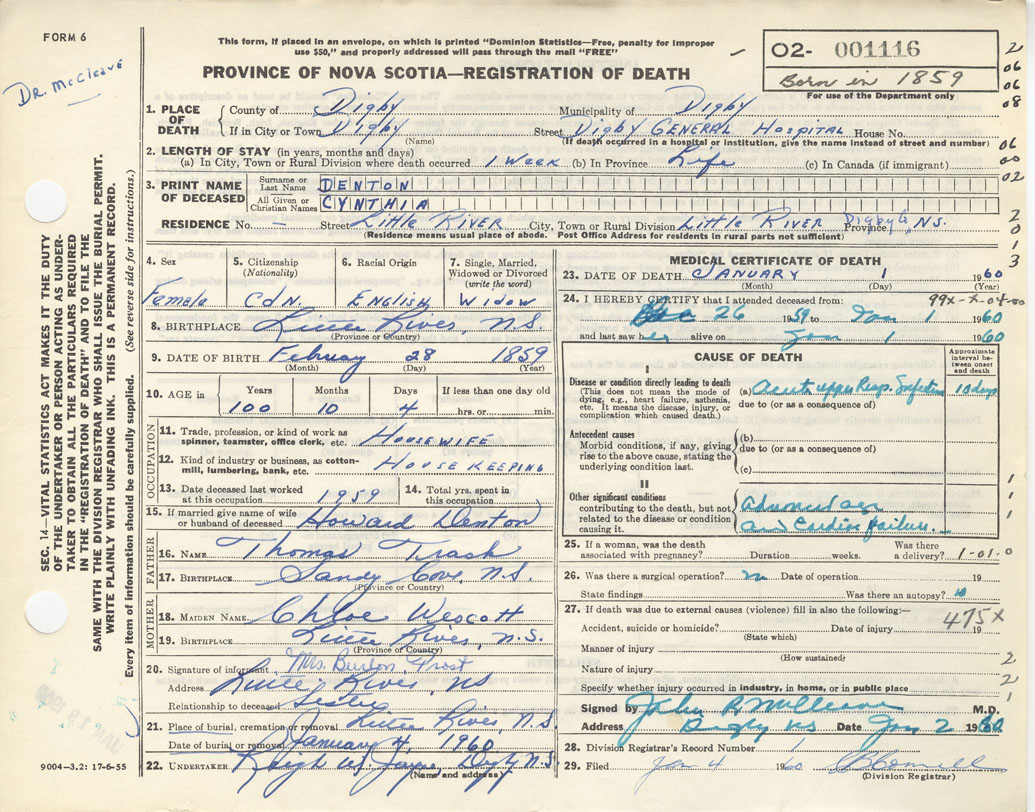 FORM 6
Dr. McCleave
This form, if placed in an envelope, on which is printed "Dominion Statistics—Free, penalty for improper
use $50," and properly addressed will pass through the mail "FREE"
PROVINCE OF NOVA SCOTIA—REGISTRATION OF DEATH
O2- 001116
Born in 1859
For use of the Department only
2
06
06
08
06
00
02
2
0
1
3
SEC. 14—VITAL STATISTICS ACT MAKES IT THE DUTY
OF THE UNDERTAKER OR PERSON ACTING AS UNDER-
TAKER TO OBTAIN ALL THE PARTICULARS REQUIRED
IN THE "REGISTRATION OF DEATH" AND TO FILE THE
SAME WITH THE DIVISION REGISTRAR WHO SHALL ISSUE THE BURIAL PERMIT.
WRITE PLAINLY WITH UNFADING INK. THIS IS A PERMANENT RECORD.
Every item of information should be carefully supplied. (See reverse side for instructions.)
1. PLACE OF DEATH County of Digby Municipality of Digby
If in City or Town Digby Street Digby General Hospital House No.
(Name) (If death occurred in a hospital or institution, give the name instead of street and number)
2. LENGTH OF STAY (in years, months and days)
(a) In City, Town or Rural Division where death occurred 1 week (b) In Province Life (c) In Canada (if immigrant)
3. PRINT NAME OF DECEASED Surname or Last Name DENTON
All Given or Christian Names CYNTHIA
RESIDENCE No. — Street Little River City, Town or Rural Division Little River Digby Co Province N.S.
(Residence means usual place of abode. Post Office Address for residents in rural parts not sufficient)
4. Sex 5. Citizenship (Nationality) 6. Racial Origin 7. Single, Married, Widowed or Divorced (write the word)
Female Cdn. English Widow
8. BIRTHPLACE Little River, N.S.
(Province or Country)
9. DATE OF BIRTH February 28 1859
(Month) (Day) (Year)
10. AGE in Years Months Days If less than one day old
100 10 4 hrs. or min.
OCCUPATION
11. Trade, profession, or kind of work as spinner, teamster, office clerk, etc. Housewife
12. Kind of industry or business, as cotton-mill, lumbering, bank, etc. House keeping
13. Date deceased last worked at this occupation 1959 14. Total yrs. spent in this occupation
15. If married give name of wife or husband of deceased Howard Denton
FATHER
16. NAME Thomas Trask
17. BIRTHPLACE Sandy Cove, N.S.
(Province or Country)
MOTHER
18. MAIDEN NAME Chloe Wescott
19. BIRTHPLACE Little River, N.S.
(Province or Country)
20. Signature of informant Mrs. Burton Frost
Address Little River, NS
Relationship to deceased Sister
21. Place of burial, cremation or removal Little River, N.S
Date of burial or removal January 4, 1960
22. UNDERTAKER Digby N.S
(Name and address)
9004—3.2: 17-6-55
MEDICAL CERTIFICATE OF DEATH
23. DATE OF DEATH January 1 1960
(Month) (Day)
24. I HEREBY CERTIFY that I attended deceased from: 99x-x-04-00
Dec 26 1959 to Jan 1 1960
and last saw her alive on Jan 1 1960
CAUSE OF DEATH
Approximate interval between onset and death
I
Disease or condition directly leading to death (a) Acute upper Resp. Infection 10 days
(This does not mean the mode of dying, e.g., heart failure, asthenia, etc. It means the disease, injury, or complication which caused death.)
due to (or as a consequence of)
Antecedent causes (b)
Morbid conditions, if any, giving rise to the above cause, stating the underlying condition last.
due to (or as a consequence of)
(c)
II
Other significant conditions contributing to the death, but not related to the disease or condition causing it.
Advanced age
and Cardiac failure.
1
1
1
25. If a woman, was the death associated with pregnancy? Duration weeks. Was there a delivery? 1-01-0
26. Was there a surgical operation? no Date of operation 19
State findings Was there an autopsy? no
27. If death was due to external causes (violence) fill in also the following:— 475x
Accident, suicide or homicide? Date of injury 19
(State which)
Manner of injury
(How sustained)
Nature of injury
2
2
1
Specify whether injury occurred in industry, in home, or in public place
Signed by John R McCleave M.D.
Address Digby NS Date Jan 2 1960
28. Division Registrar's Record Number 1
29. Filed Jan 4 1960
(Division Registrar)